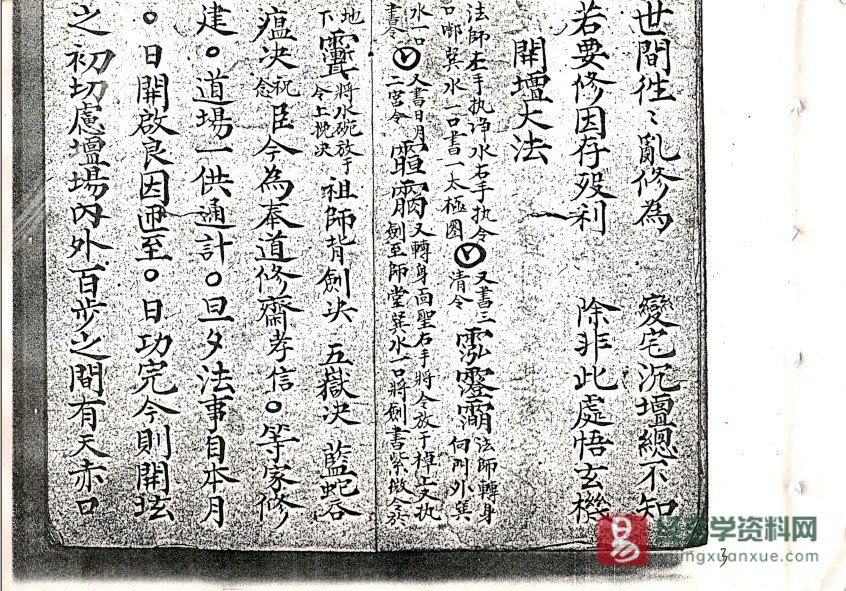 世間徃〻亂修為 變宅沉壇總不知
若要修因存殁利 除非此處悟玄機
開壇大法
法師左手执净水右手执令又書三 法師轉身
口啣巽水一口書一太極圈 清令 向門外巽
水一口 又書日月 又轉身面聖右手將令放于棹上又执
書令 二宮令 劍至師堂巽水一口將劍書紫微
地 將水碗放于 祖師背劍决 五嶽决 藍蛇
下 令上
瘟决 祝念 臣今為奉道修齋孝信○等家修
建○道場一供通計○旦夕法事自本月
○日開啟良因迊至○日功完今則開壇
之初切慮壇場内外百步之間有天赤口
玄学资料网
xuanxue.com
3